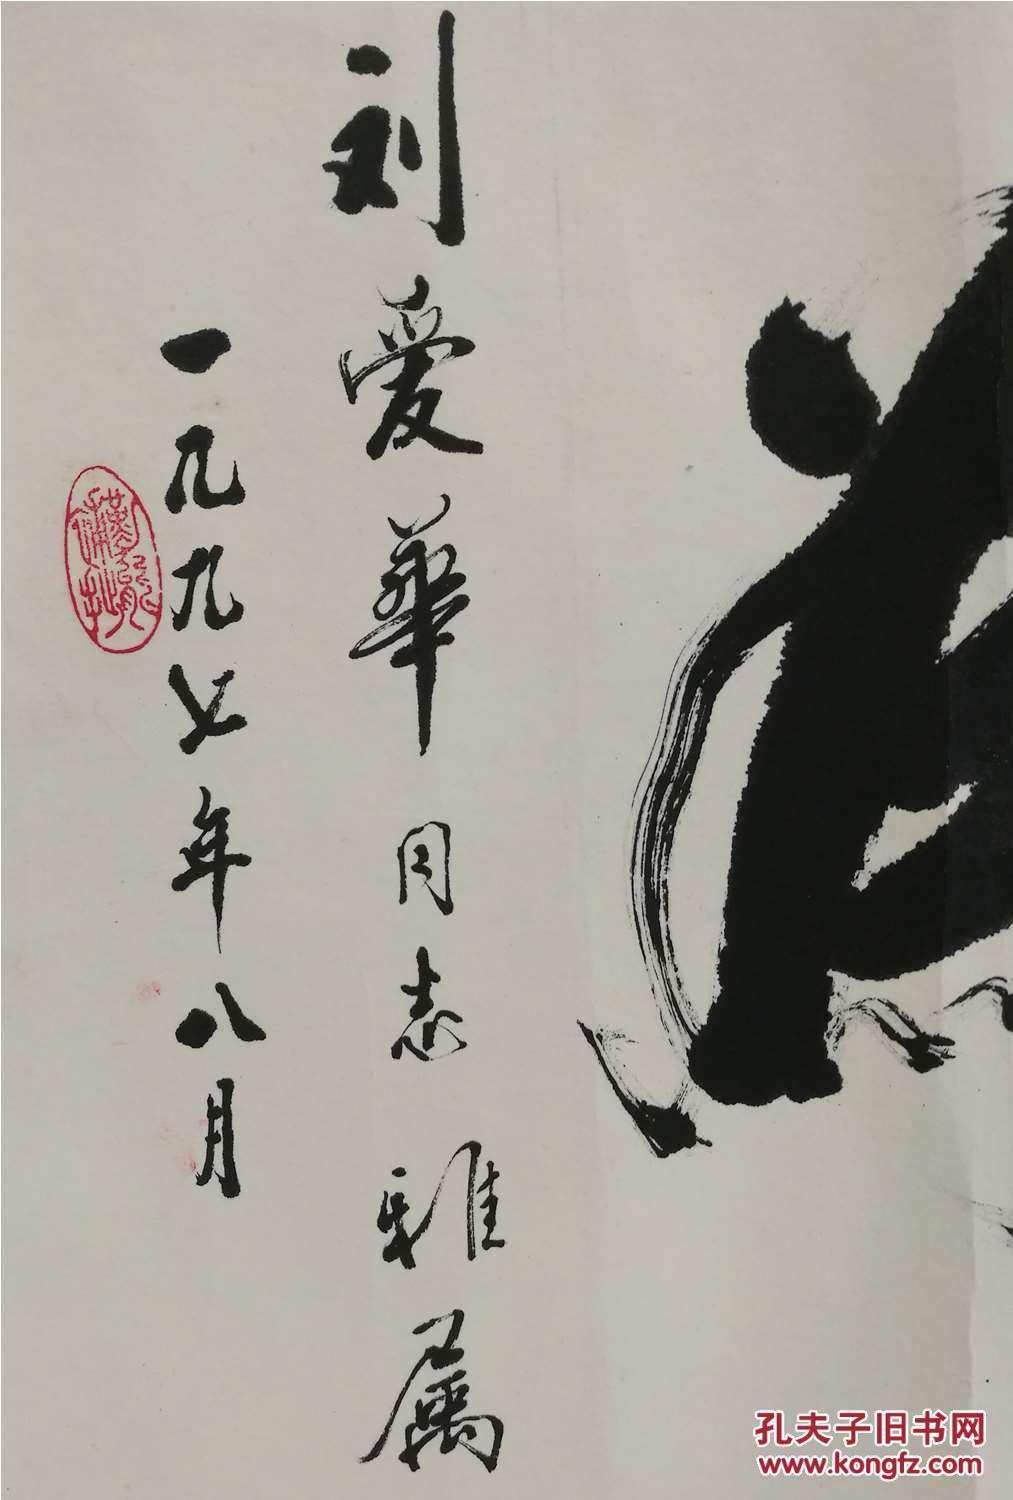 刘愛華同志雅属
一九九七年八月
孔夫子旧书网
www.kongfz.com